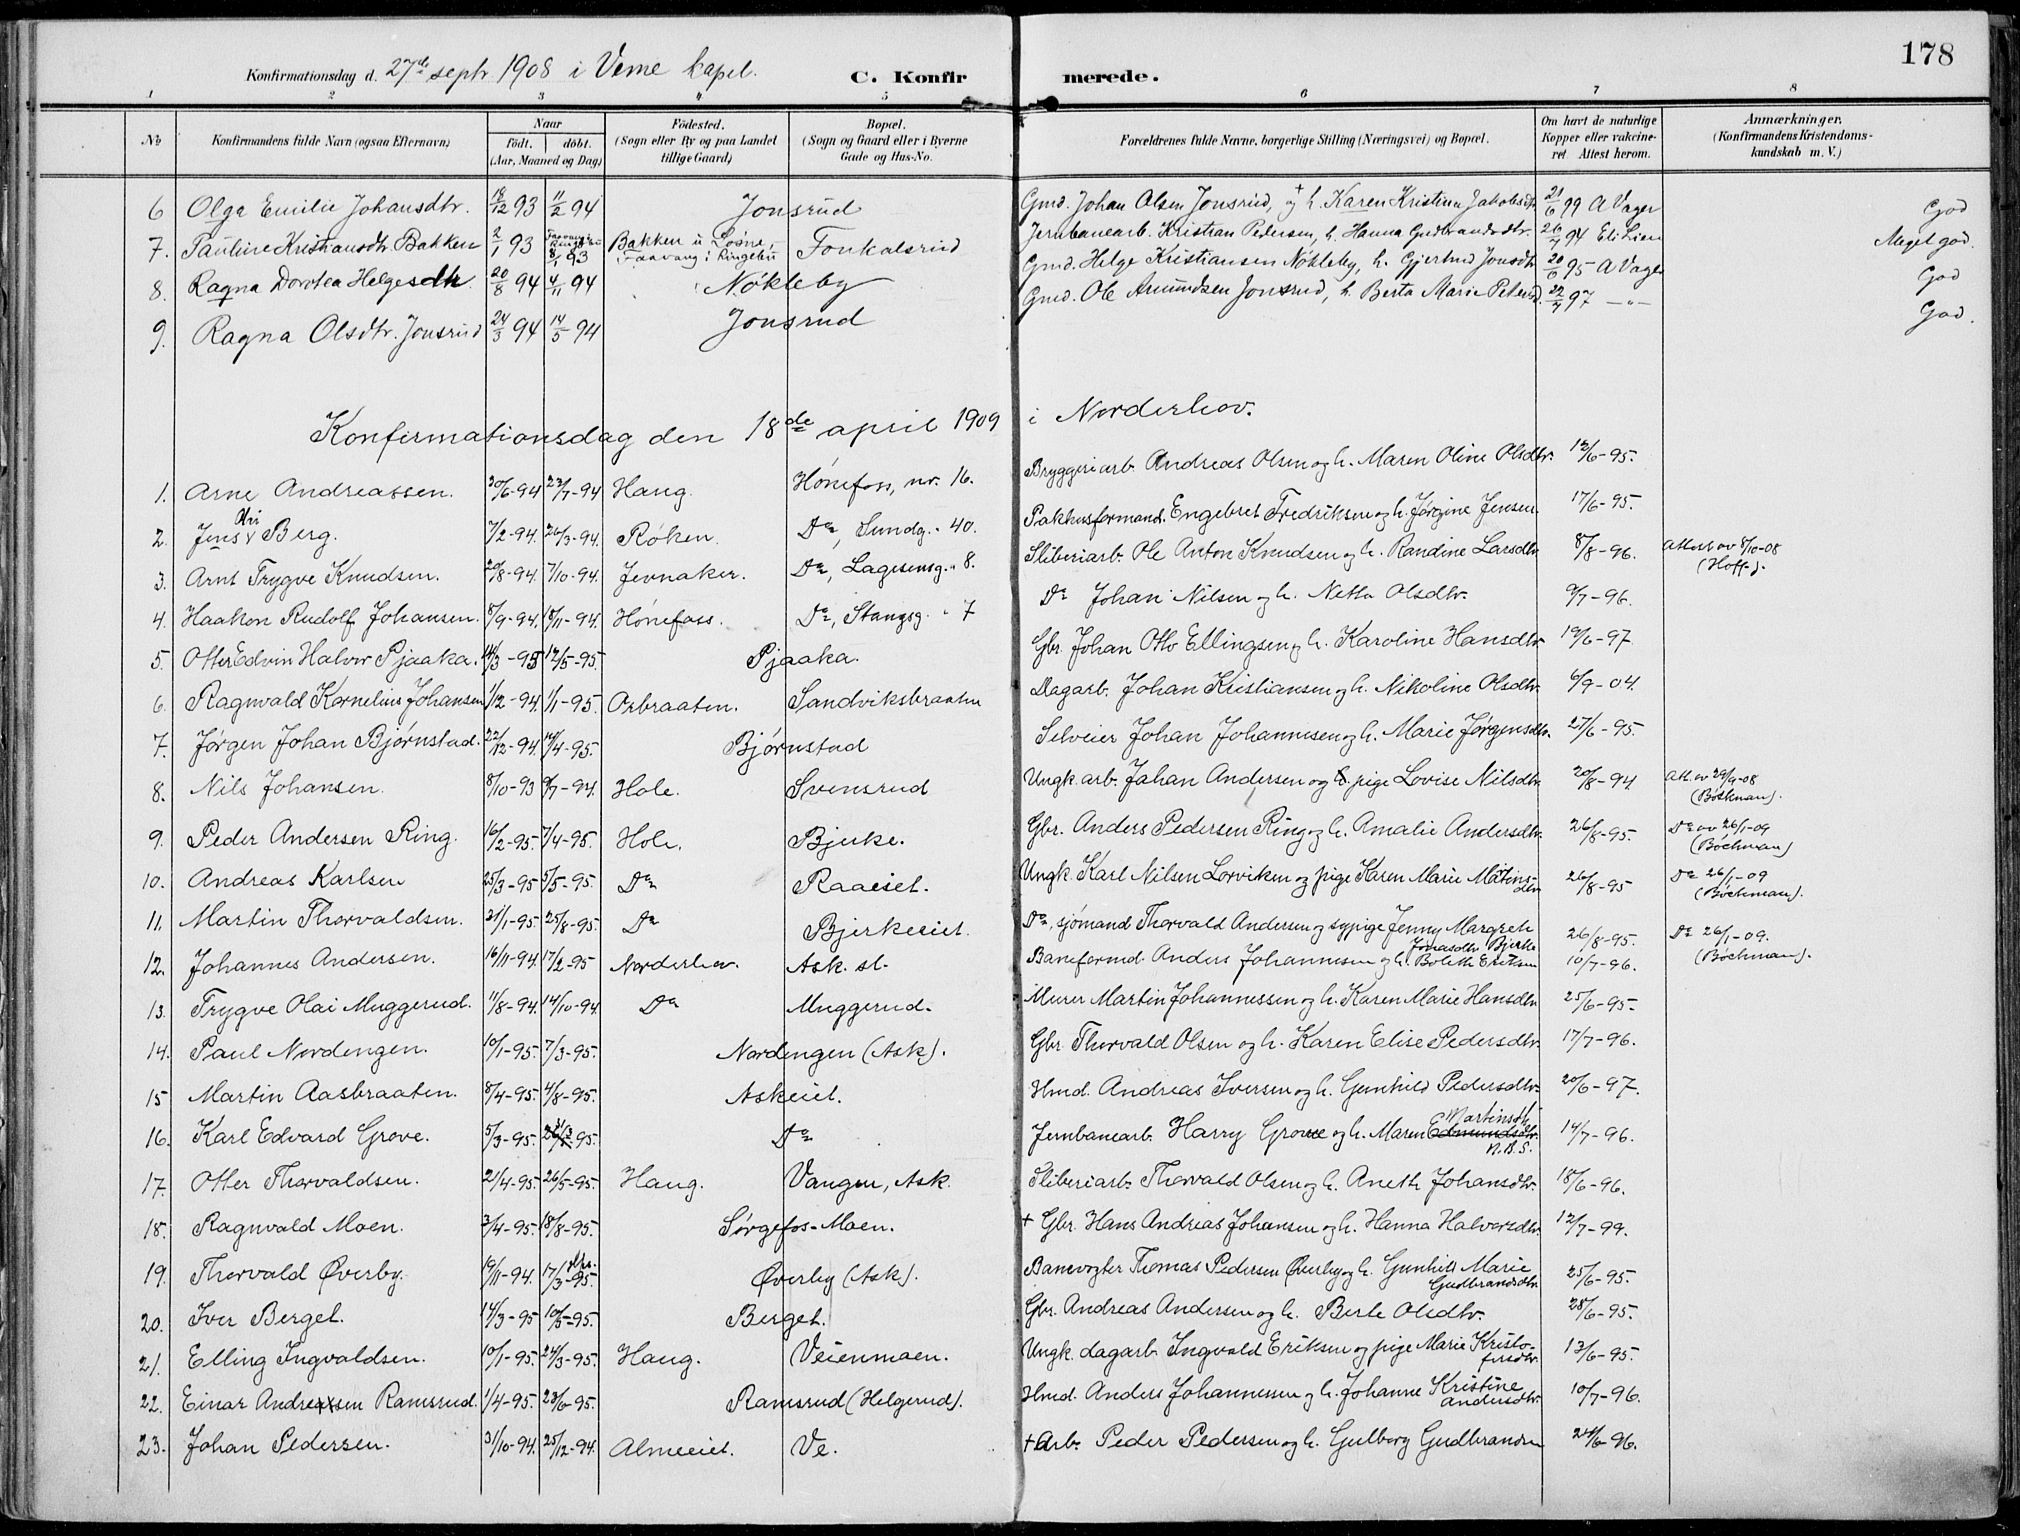 178
Konfirmationsdag d. 27de septr 1908 i Veme kapel. C. Konfirmerede.
1 2 3 4 5 6 7 8
No Konfirmandens fulde Navn (ogsaa Efternavn) Naar født. døbt. (Aar, Maaned og Dag) Fødested. (Sogn eller By og paa Landet tillige Gaard) Bopæl. (Sogn og Gaard eller i Byerne Gade og Hus-No. Forældrenes fulde Navne, borgerlige Stilling (Næringsvei) og Bopæl. Om havt de naturlige Kopper eller vakcineret Attest herom. Anmærkninger. (Konfirmandens Kristendomskundskab m. V.)
6 Olga Emilie Johansdtr. 18/12 93 11/2 94 Jonsrud Gmd. Johan Olsen Jonsrud, og + h. Karen Kristine Jakobsdtr 21/6 99 A Vager God
7. Pauline Kristiansdtr Bakken 2/1 93 8/1 93 Bakken u Losne, Faavang i Ringebu Fonkalsrud Jernbanearb. Kristian Pedersen, h. Hanna Gudbrandsdtr. 26/7 94 Eli Lien Meget god.
8. Ragna Dorotea Helgesdtr 20/8 94 4/11 94 Nökleby Gmd. Helge Kristiansen Nökleby, h. Gjertrud Jonsdtr 20/6 95 A Vager God
9. Ragna Olsdtr. Jonsrud 24/3 94 14/5 94 Jonsrud Gmd. Ole Amundsen Jonsrud, h. Berta Marie Petersd. 22/7 97 — " — God.
Konfirmationsdag den 18de april 1909 i Norderhov.
1. Arne Andreassen. 30/6-94 23/7-94 Haug. Hønefos, nr. 16. Bryggeriarb. Andreas Olsen og h. Maren Oline Olsdtr. 12/6-95.
2. Jens Berg. 7/2-94. 26/3-94. Røken. Do, Sundg. " 40. Pakhusformand. Engebret Fredriksen og h. Jørgine Jensen. 17/6-95.
3. Arnt Trygve Knudsen. 20/8-94. 7/10-94. Jevnaker. Do, Lagesensg. " 8. Sliberiarb. Ole Anton Knudsen og h. Randine Larsdtr 8/8-96. Attest av 8/10-08 (Hoff).
4. Haakon Rudolf Johansen. 8/9-94. 18/11-94. Hønefoss. Do, Stangsg. " 7 Do Johan Nilsen og h. Netta Olsdtr. 9/7-96.
5. Otter Edvin Halvor Pjaaka. 14/3-95 12/5-95. Pjaaka. Gbr. Johan Otto Ellingsen og h. Karoline Hansdtr 19/6-97.
6. Ragnvald Kornelius Johansen 1/12-94. 1/1-95. Osbraaten. Sandviksbraaten Dagarb. Johan Kristiansen og h. Nikoline Olsdtr. 6/9-04.
7. Jørgen Johan Bjørnstad. 22/12-94. 14/4-95. Bjørnstad Selveier Johan Johannesen og h. Marie Jørgensdtr. 27/6-95.
8. Nils Johansen. 8/10-93 9/7-94. Hole. Svensrud Ungk. arb. Johan Andersen og pige Lovise Nilsdtr 20/8-94 Att. av 29/9-08 (Bøckman).
9. Peder Andersen Ring. 16/2-95. 7/4-95. Hole. Bjerke. Gbr. Anders Pedersen Ring og h. Amalie Andersdtr. 26/8-95. Do av 26/1-09 (Bøckman)
10. Andreas Karlsen 25/3-95 5/5-95. Do Raaeiet. Ungk. Karl Nilsen Lorviken og pige Karen Marie Matinsdtr 26/8-95 Do 26/1-09 (Bøckman).
11. Martin Thorvaldsen. 21/1-95. 25/8-95. Do Bjerkeeiet. Do, sjømand Thorvald Andersen og sypige Jenny Margreth Jonasdtr. Bjerke 26/8-95. Do 26/1-09. (Bøckman).
12. Johannes Andersen. 16/11-94 17/2-95 Norderhov. Ask. st. Baneformd. Anders Johannesen og h. Bolette Eriksen 10/7-96.
13. Trygve Olai Muggerud. 11/8-94. 14/10-94. Do Muggerud. Murer Martin Johannessen og h. Karen Marie Hansdtr 25/6-95.
14. Paul Nordengen. 10/1-95. 7/3-95. Nordengen (Ask). Gbr Thorvald Olsen og h. Karen Elise Pedersdtr. 17/7-96.
15 Martin Aasbraaten. 8/4-95. 4/8-95. Askeiet. Hmd. Andreas Iversen og h. Gunhild Pedersdtr. 20/6-97.
16. Karl Edvard Grove. 5/3-95. 95. Do Jernbanearb. Harry Grove og h. Maren Edmundsdtr. Martinsdtr. N.B.S. 14/7-96.
17. Otter Thorvaldsen. 21/4-95. 26/5-95. Haug. Vangen, Ask. Sliberiarb. Thorvald Olsen og h. Aneth Johansdtr. 18/6-96.
18. Ragnvald Moen. 3/4-95. 18/8-95. Sørgefos-Moen. + Gbr. Hans Andreas Johansen og h. Hanna Halvorsdtr. 12/7-99.
19. Thorvald Øverby. 19/11-94. 17/3-95 Øverby (Ask). Banevogter Thomas Pedersen Øverby og h. Gunhild Marie Gudbrandsdtr. 25/6-95.
20. Iver Berget. 14/3-95 10/5-95. Berget. Gbr. Andreas Andersen og h. Berte Olsdtr. 28/6-95.
21. Elling Ingvaldsen. 10/1-95. 24/3-95. Haug. Veienmoen. Ungk. dagarb. Ingvald Eriksen og pige Marie Kristofersdtr. 13/6-95.
22. Einar Andreassen Ramsrud. 1/4-95. 23/6-95. Ramsrud (Helgerud). Hmd. Anders Johannessen og h. Johanne Kristine Andersdtr. 10/7-96.
23. Johan Pedersen. 31/10-94. 25/12-94. Almeeiet. Ve. + Arb. Peder Pedersen og h. Gulborg Gudbrandsen 24/6-96.